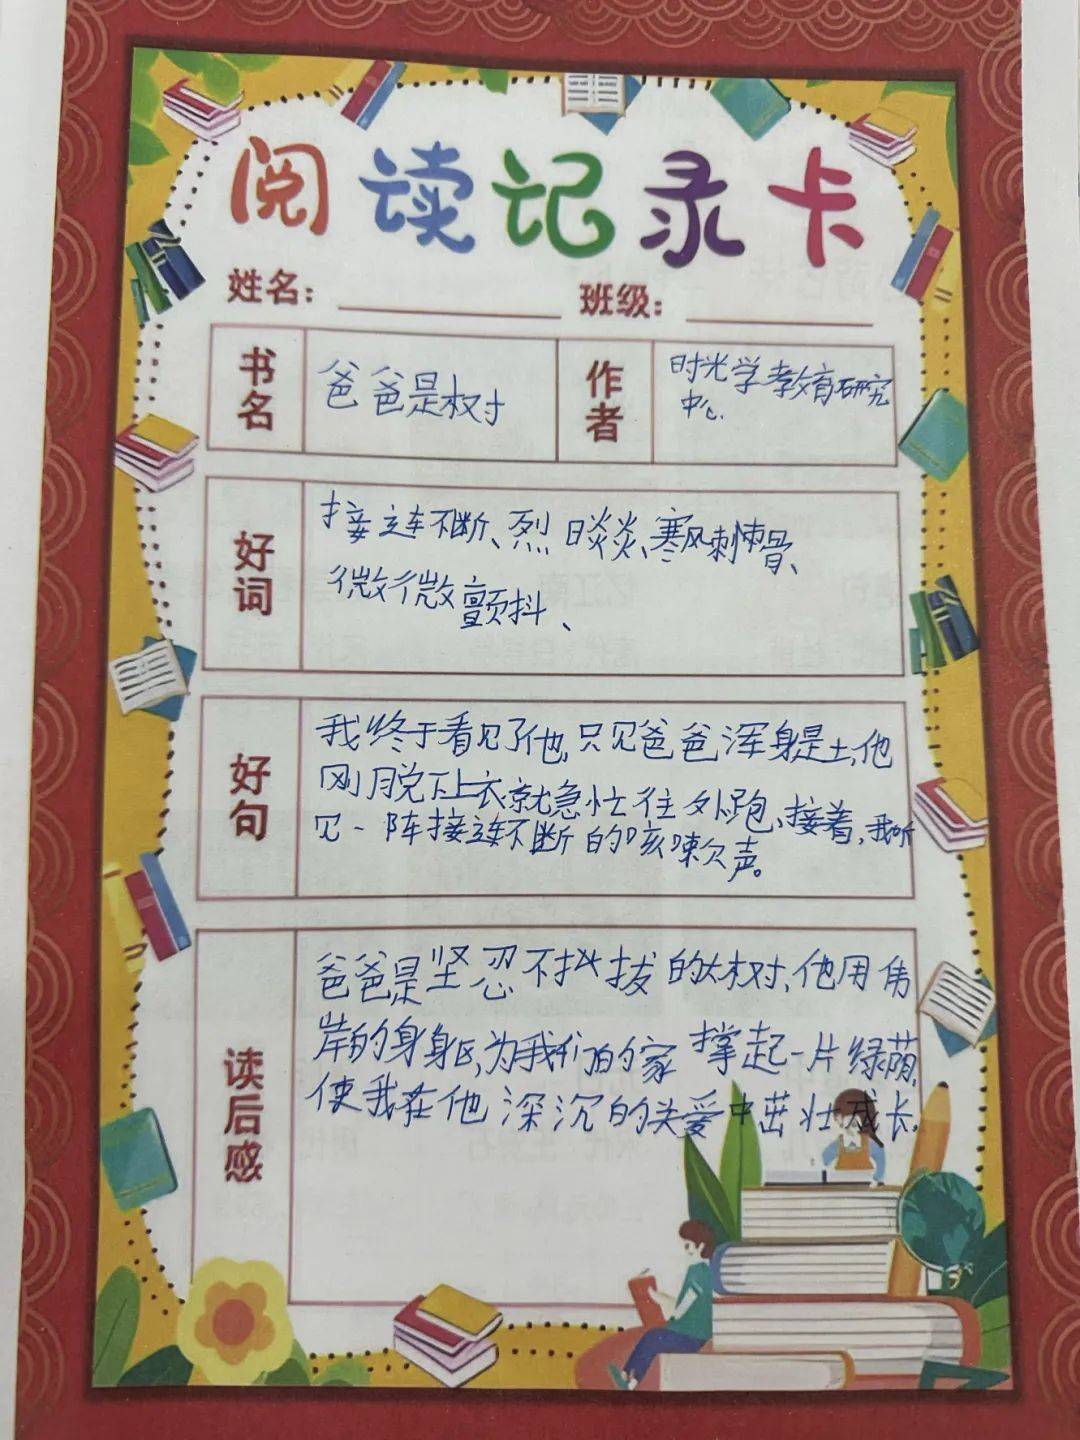 阅读记录卡
姓名： 班级：
书名 爸爸是树 作者 时光学教育研究
中心.
好词 接连不断、烈日炎炎、寒风刺骨、
微微颤抖、
好句 我终于看见了他,只见爸爸浑身是土,他
刚脱下上衣就急忙往外跑、接着,我听
见一阵接连不断的咳嗽声。
读后感 爸爸是坚忍不拔的大树,他用伟
岸的身躯,为我们的家撑起一片绿荫,
使我在他深沉的关爱中茁壮成长.